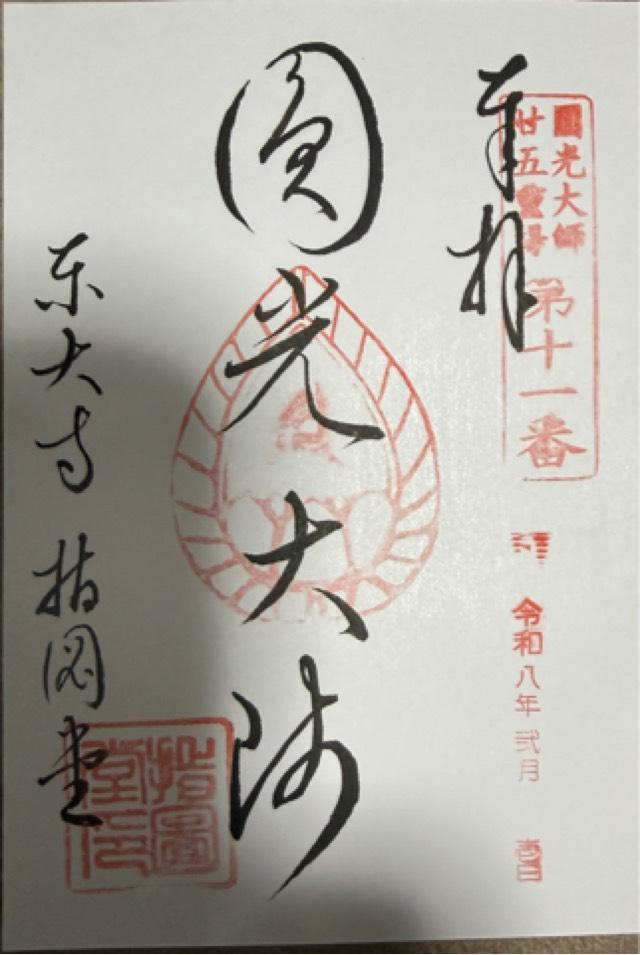 奉拝
圓光大師
廿五霊場
第十一番
令和八年弐月
壱日
圓光大師
東大寺 指図堂
指圖
堂印